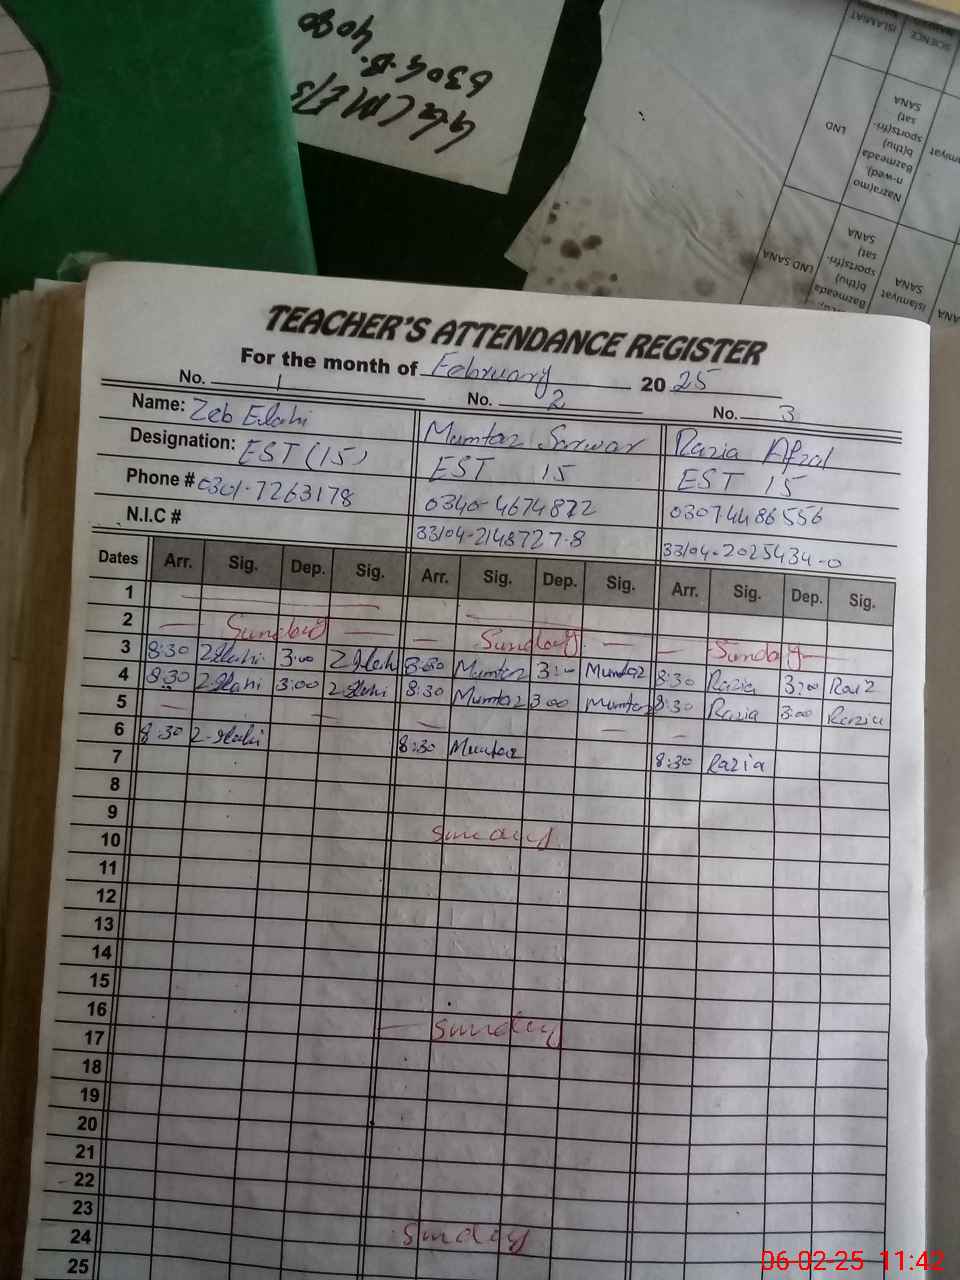 G G C M E/S
630 G.B.
4080
ISLAMIAT
SCIENCE
LND
Nazra(mo
n-wed),
Bazmeada
b(thu)
sports(fri-
sat)
SANA
LND SANA
Bazmeada
b(thu)
sports(fri-
sat)
SANA
islamiyat
SANA
TEACHER'S ATTENDANCE REGISTER
For the month of February 2025
No. 1 No. 2 No. 3
Name: Zeb Elahi Mumtaz Sarwar Razia Afzal
Designation: EST (15) EST 15 EST 15
Phone # 0301-7263178 0340-4674872 03074486556
N.I.C # 33104-2148727-8 33104-2025434-0
Dates Arr. Sig. Dep. Sig. Arr. Sig. Dep. Sig. Arr. Sig. Dep. Sig.
1
2 Sunday Sunday Sunday
3 8:30 ZElahi 3:00 ZElahi 8:30 Mumtaz 3:00 Mumtaz 8:30 Razia 3:00 Razia
4 8:30 ZElahi 3:00 ZElahi 8:30 Mumtaz 3:00 Mumtaz 8:30 Razia 3:00 Razia
5
6 8:30 Z-Elahi 8:30 Mumtaz 8:30 Razia
7
8
9 Sunday
10
11
12
13
14
15
16 Sunday
17
18
19
20
21
22
23 Sunday
24
25
06-02-25 11:42